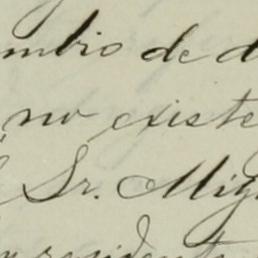 mbio de d
no existe
Sr. Mig
residente